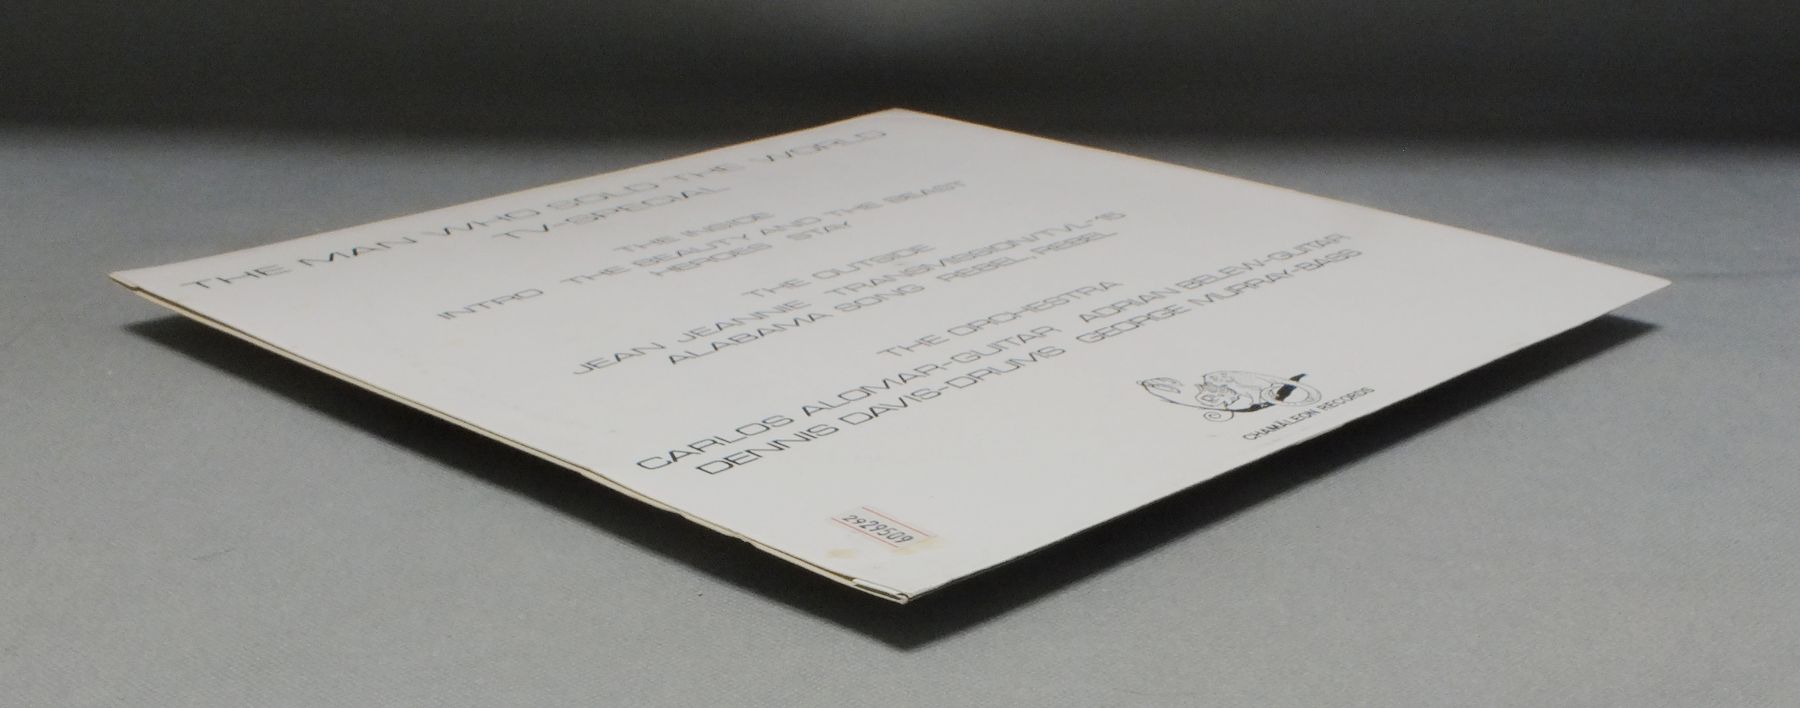 THE MAN WHO SOLD THE WORLD
TV-SPECIAL
THE INSIDE
INTRO THE BEAUTY AND THE BEAST
HEROES STAY
THE OUTSIDE
JEAN JEANNIE TRANSMISSION/TVL-15
ALABAMA SONG REBEL, REBEL
THE ORCHESTRA
CARLOS ALOMAR-GUITAR ADRIAN BELEW-GUITAR
DENNIS DAVIS-DRUMS GEORGE MURRAY-BASS
©
CHAMÄLEON RECORDS
2929509